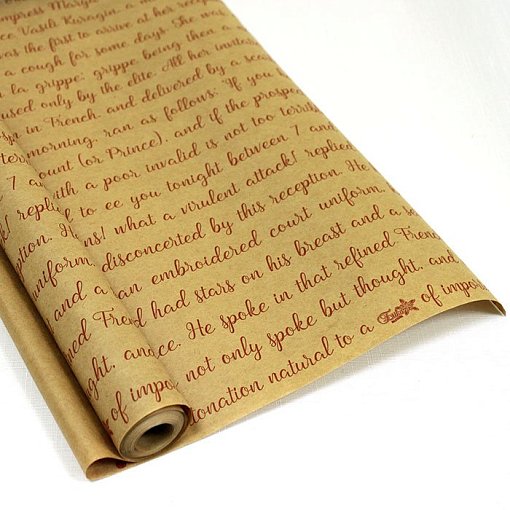 mpress Marga
ce Vasili Kuragin, a
was the first to arrive at her rece
a cough for some days. She was
la grippe; grippe being then a
used only by the elite. All her invitat
in French, and delivered by a sca
morning, ran as follows: "If you
ount (or Prince), and if the prospe
7 a with a poor invalid is not too terribl
! repli to ee you tonight between 7 and
ption. H ns! what a virulent attack! replie
uniform, disconcerted by this reception. He
and a an embroidered court uniform,
ned Fre d had stars on his breast and a se
ght, and ce. He spoke in that refined Frenc
of impo not only spoke but thought, and
donation natural to a of impor